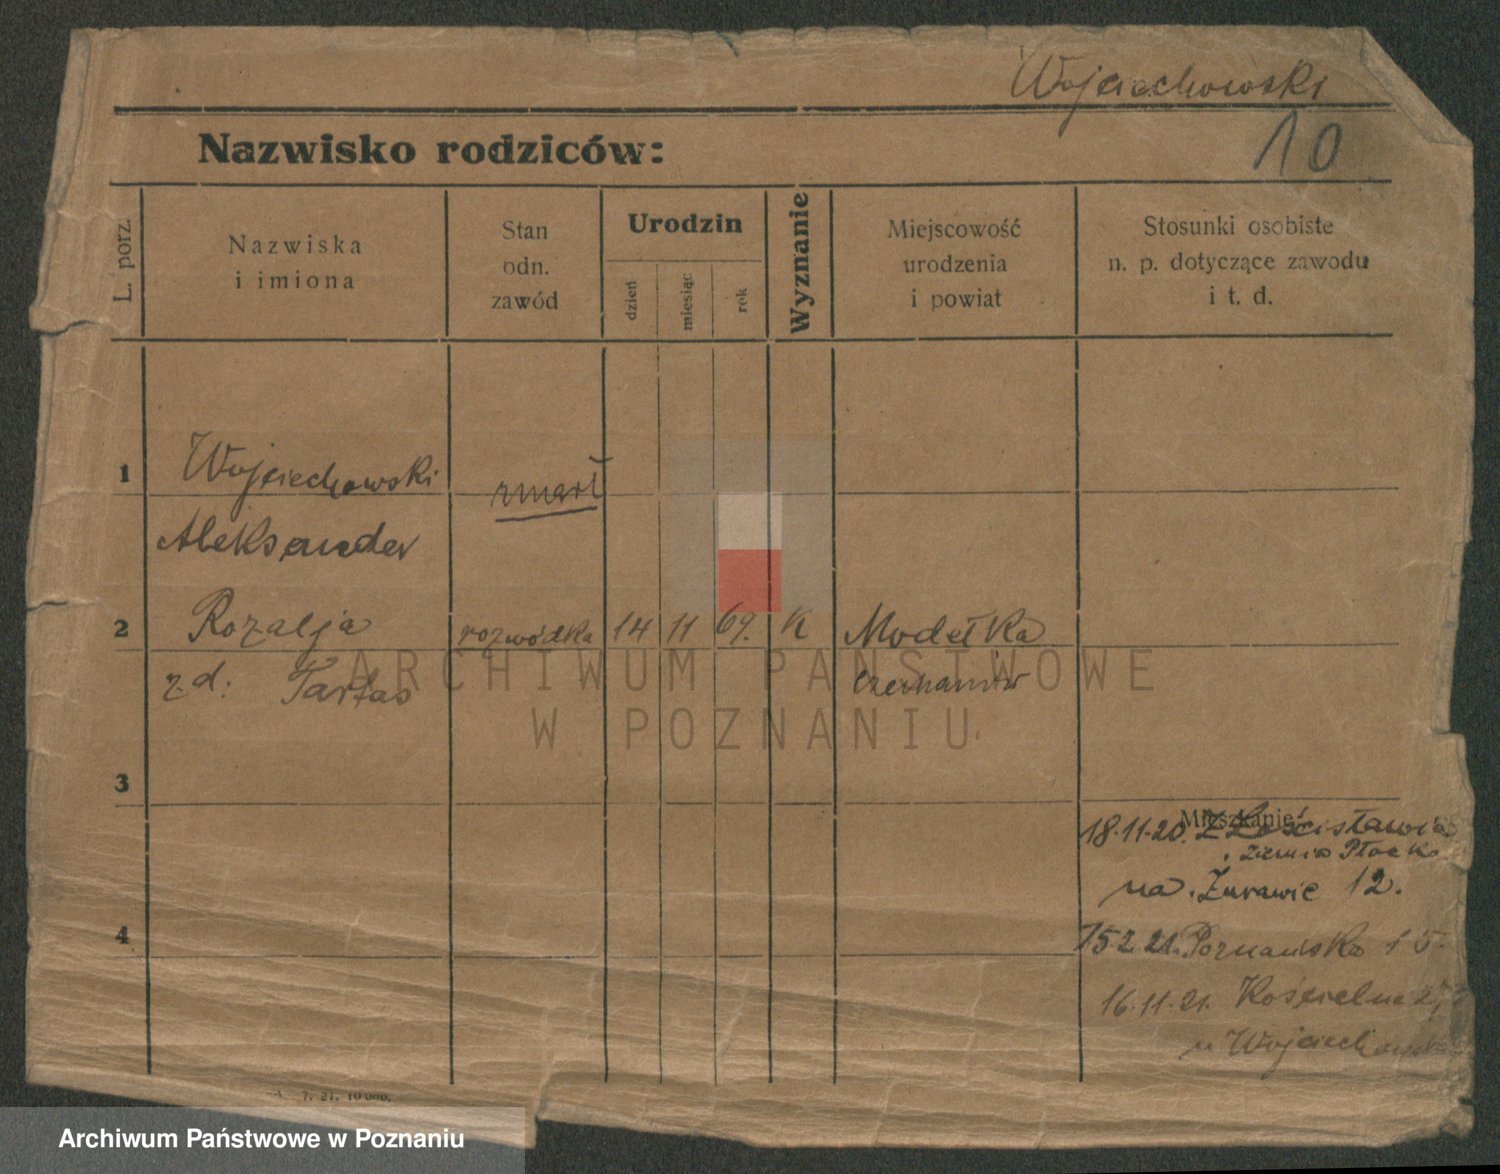 Wojciechowski
10
Nazwisko rodziców:
L. porz.
Nazwiska
i imiona
Stan
odn.
zawód
Urodzin
dzień
miesiąc
rok
Wyznanie
Miejscowość
urodzenia
i powiat
Stosunki osobiste
n. p. dotyczące zawodu
i t. d.
1
Wojciechowski
zmarł
Aleksander
2
Rozalja
rozwódka
14
11
69.
K
Modełka
z d. Tarłas
ARCHIWUM PAŃSTWOWE
W POZNANIU
3
Mieszkanie:
18.11.20. z
ziemia Płock
na Żurawie 12.
4
15.2.21. Poznańska 15.
16.11.21. Kościelna
u Wojciechowska
7. 21. 10 000.
Archiwum Państwowe w Poznaniu